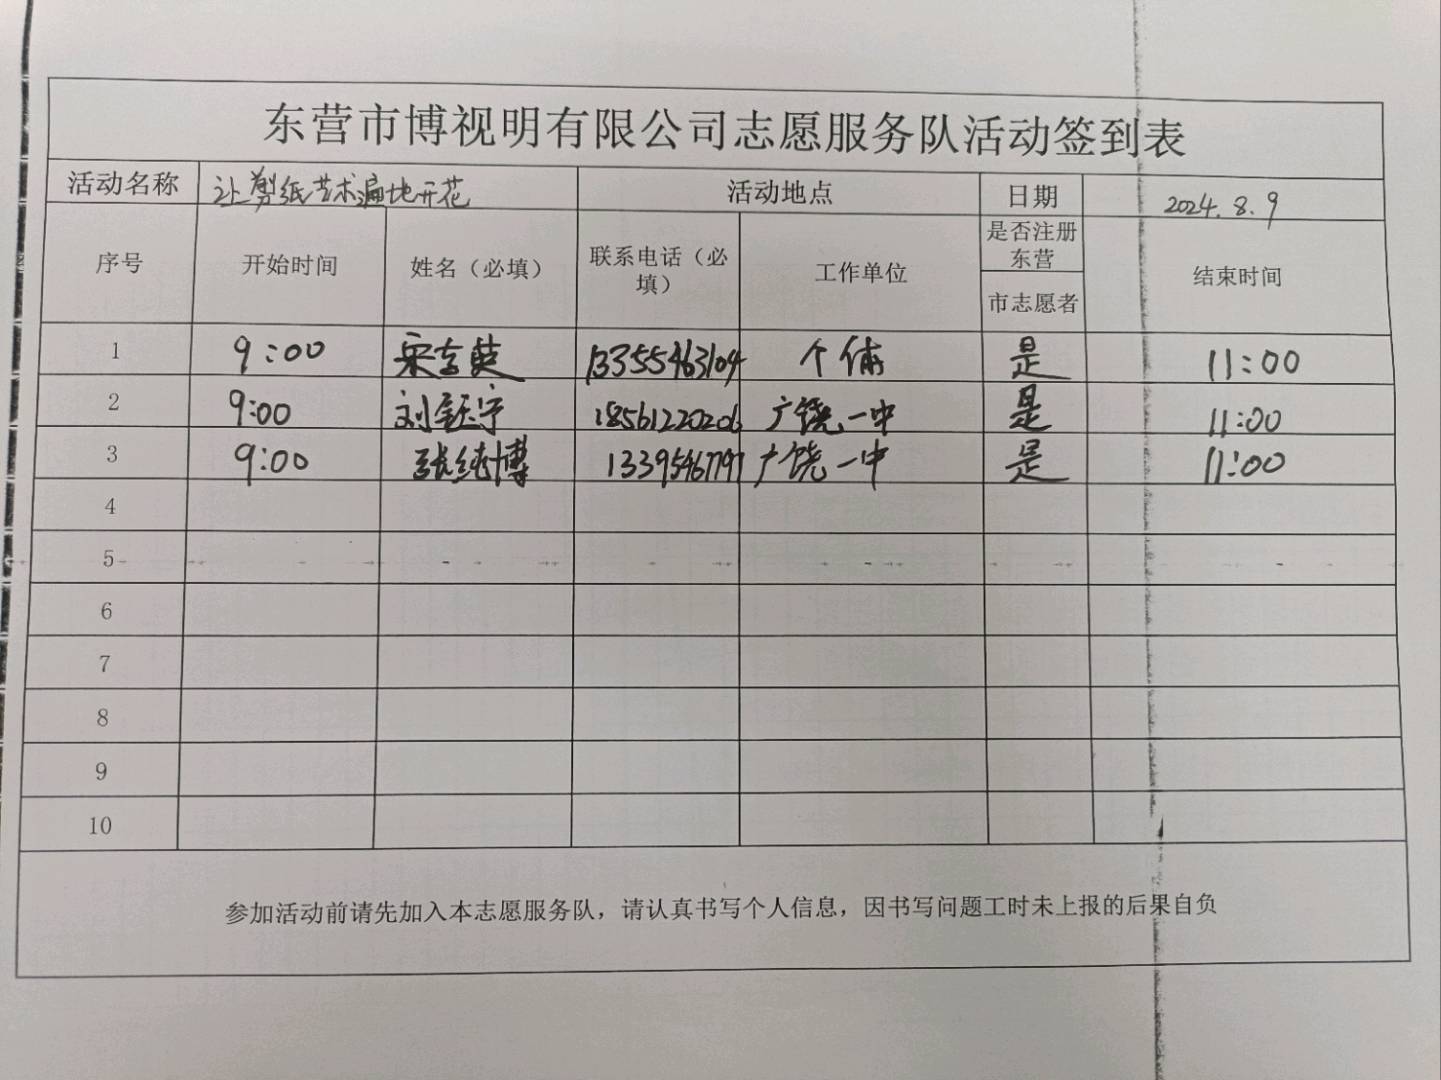 东营市博视明有限公司志愿服务队活动签到表
活动名称 让剪纸艺术遍地开花 活动地点 日期 2024.8.9
序号 开始时间 姓名（必填） 联系电话（必填） 工作单位 是否注册东营市志愿者 结束时间
1 9:00 13355463104 个体 是 11:00
2 9:00 刘钰宁 18561220206 广饶一中 是 11:00
3 9:00 张纯博 广饶一中 是 11:00
4
5
6
7
8
9
10
参加活动前请先加入本志愿服务队，请认真书写个人信息，因书写问题工时未上报的后果自负